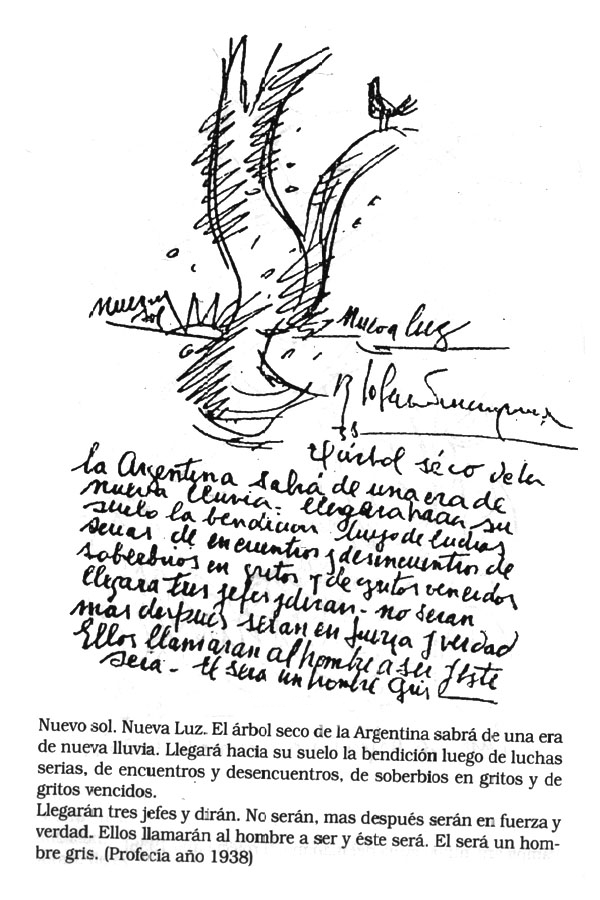 nuevo
sol
nueva luz
B Solari Parravicini
38
El árbol séco de la
la Argentina sabrá de una era de
nueva lluvia. llegara hacia su
suelo la bendicion luego de luchas
serias de encuentros y desencuentros de
soberbios en gritos y de gritos vencidos
llegara tres jefes y diran. no seran
mas despues seran en fuerza y verdad
Ellos llamaran al hombre a ser y este
sera. El sera un hombre gris
Nuevo sol. Nueva Luz. El árbol seco de la Argentina sabrá de una era
de nueva lluvia. Llegará hacia su suelo la bendición luego de luchas
serias, de encuentros y desencuentros, de soberbios en gritos y de
gritos vencidos.
Llegarán tres jefes y dirán. No serán, mas después serán en fuerza y
verdad. Ellos llamarán al hombre a ser y éste será. El será un hom-
bre gris. (Profecía año 1938)